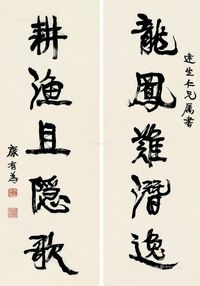 龍鳳難潛逸
達生仁兄屬書
耕漁且隱歌
康有為